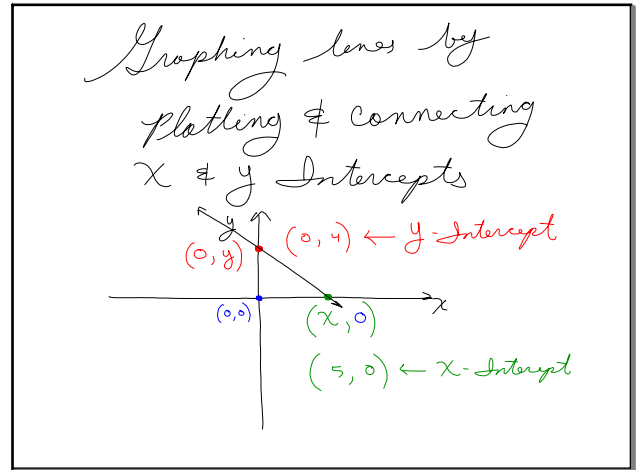 Graphing lines by
Plotting & Connecting
X & y Intercepts
y
(0, y) (0, 4) ← y-Intercept
x
(0,0) (x, 0)
(5, 0) ← x-Intercept